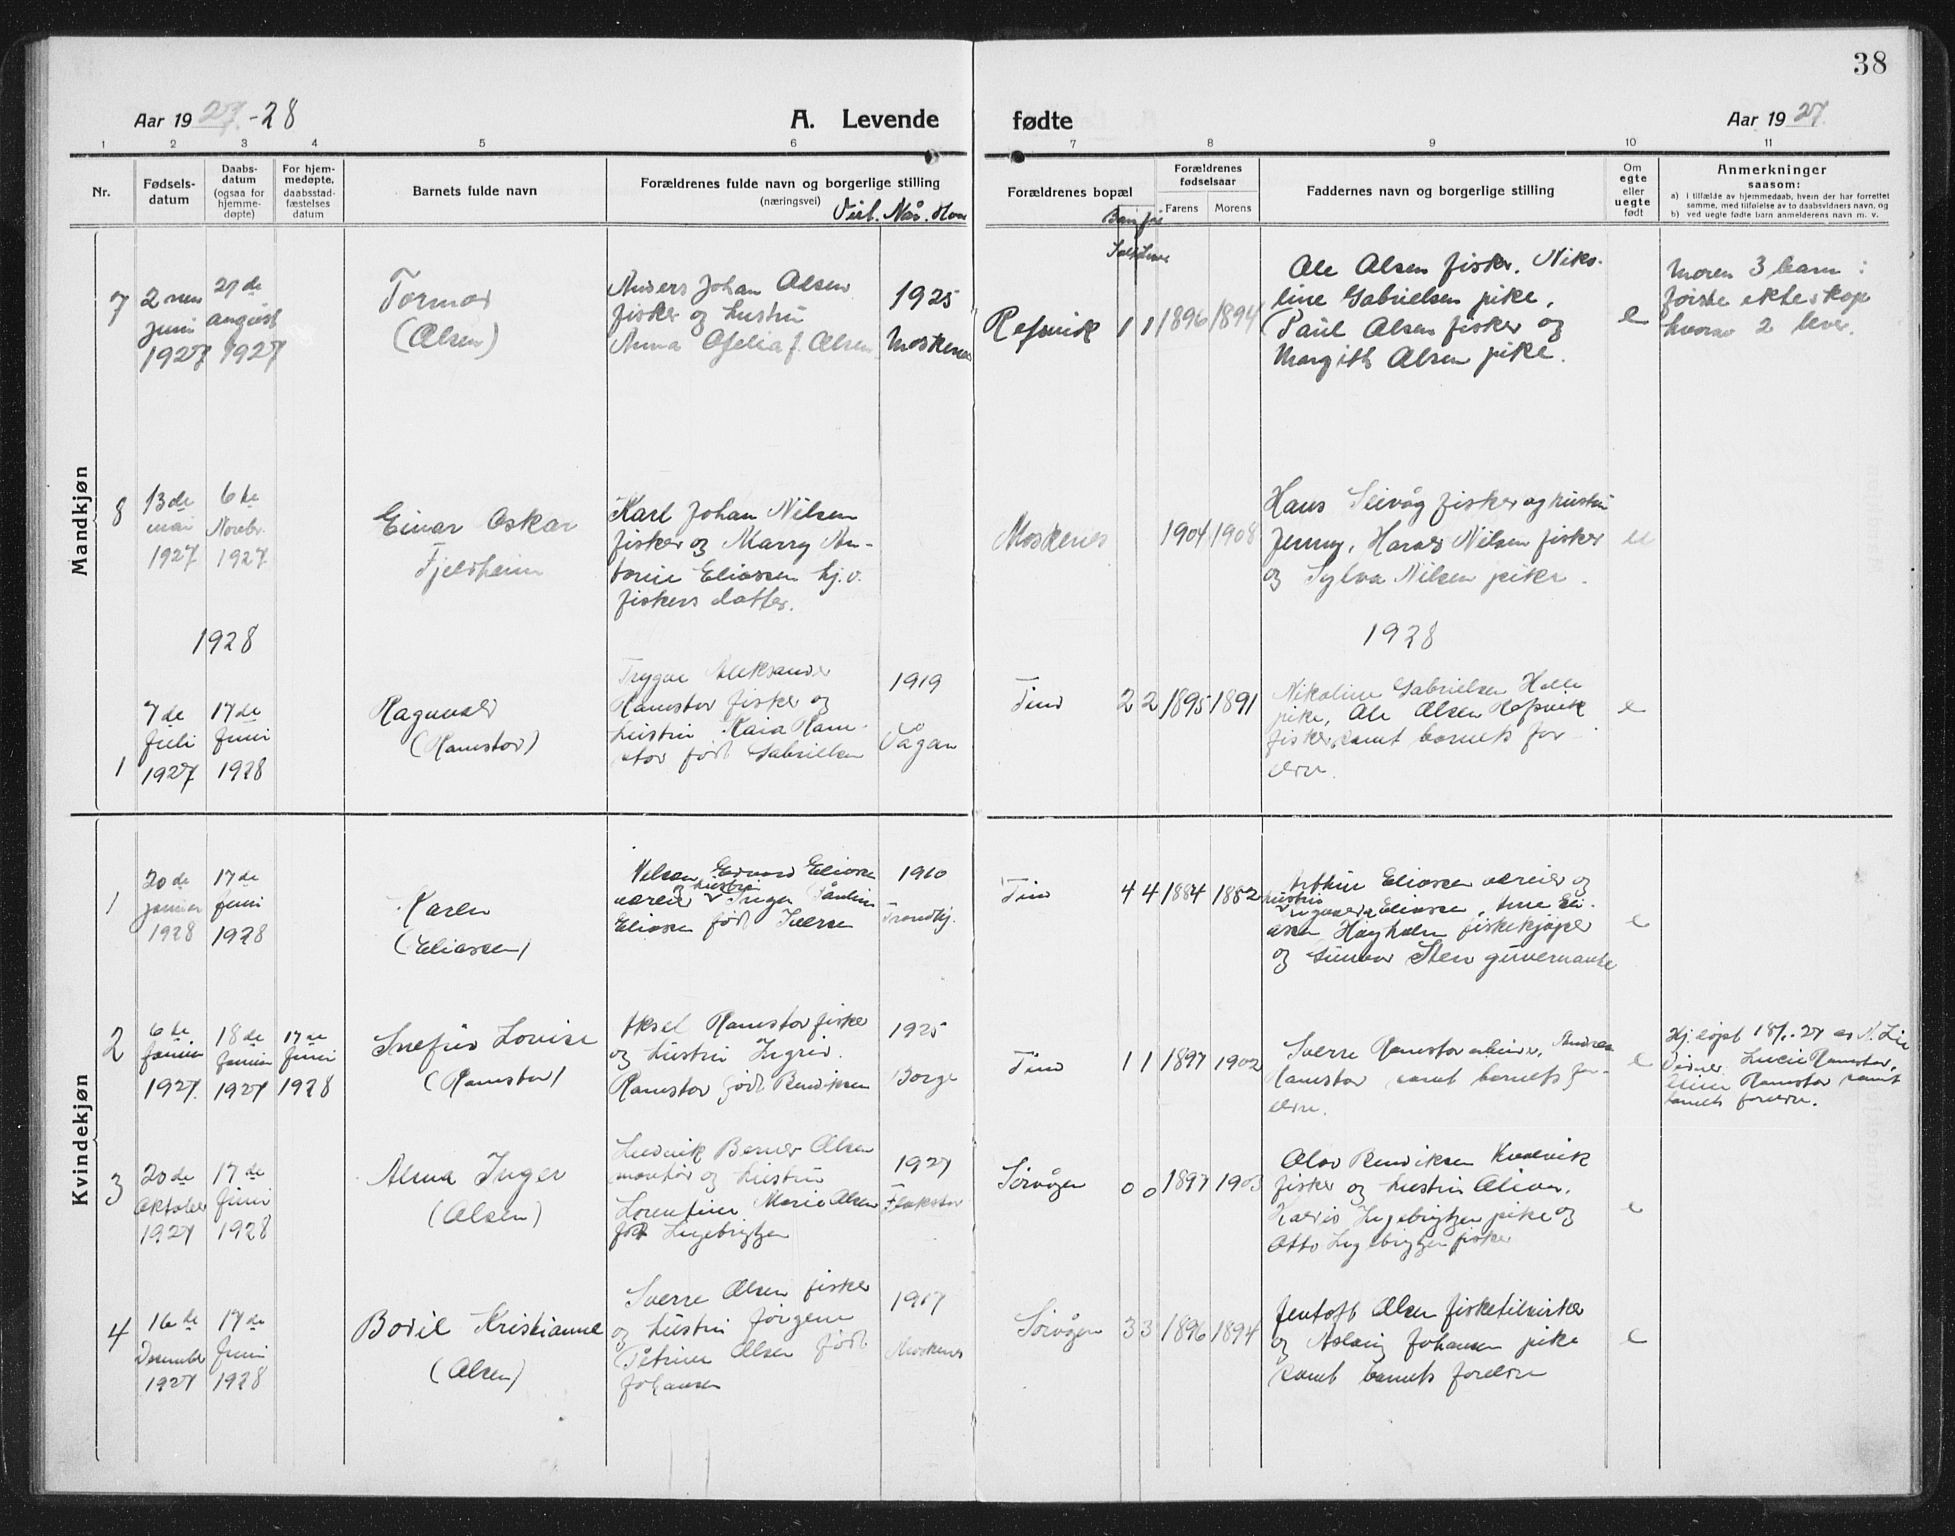 38
Aar 1927-28
A. Levende
fødte
Aar 1927.
1 2 3 4 5 6 7 8 9 10 11
Nr.
Fødsels-
datum
Daabs-
datum
(ogsaa for
hjemme-
døpte)
For hjem-
medøpte,
daabsstad-
fæstelses
datum
Barnets fulde navn
Forældrenes fulde navn og borgerlige stilling
(næringsvei)
Viet. Når. Hvor
Forældrenes bopæl
Barn før
Forældrenes
fødselsaar
Farens Morens
Faddernes navn og borgerlige stilling
Om
egte
eller
uegte
født
Anmerkninger
saasom:
a) i tilfælde av hjemmedaab, hvem der har forrettet
samme, med tilføielse av to daabsvidners navn, og
b) ved uegte fødte barn anmelderens navn m. v.
Mandkjøn
7
2nen
juni
1927
21de
august
1927
Tormod
(Olsen)
Anders Johan Olsen
fisker og hustru
Anna Ofelia f. Olsen
1925
Moskenes
Refsvik
1 1 1896 1894
Ole Olsen fisker. Niko-
line Gabrielsen pike,
Paul Olsen fisker og
Margith Olsen pike.
e
Moren 3 barn i
første ekteskap
hvorav 2 lever.
8
13de
mai
1927
6te
Novbr.
1927
Einar Oskar
Fjeldheim
Karl Johan Nilsen
fisker og Marry An-
tonie Eliassen hj.v.
fiskers datter.
Moskenes
1904 1908
Hans Seivåg fisker og hustru
Jenny, Harald Nilsen fisker
og Sylva Nilsen pike.
u
1928
1928
1
7de
Juli
1927
17de
Juni
1928
Ragnvald
(Ramstad)
Trygve Aleksander
Ramstad fisker og
hustru Kaia Ram-
stad født Gabrielsen
1919
Vågan
Tind
2 2 1895 1891
Nikoline Gabrielsen Helle
pike, Ole Olsen Refsvik
fisker, samt barnets for-
eldre.
e
Kvindekjøn
1
20de
januar
1928
17de
juni
1928
Karen
(Eliassen)
Nelson Edvard Eliassen
væreier og hustru Inger Påuline
Eliassen født Iversen
1910
Trondhj.
Tind
4 4 1884 1882
Arthur Eliassen væreier og
hustru
Eliassen, Arne Eli-
assen Høgholm fiskekjøper
og Gunvor Sten guvernante
e
2
6te
Januar
1927
18de
Januar
1927
17de
Juni
1928
Snefrid Lovise
(Ramstad)
Aksel Ramstad fisker
og hustru Ingrid
Ramstad født Bendiksen
1925
Borge
Tind
1 1 1897 1902
Sverre Ramstad arbeider, Andrea
Ramstad samt barnets for-
eldre.
e
Hj.døpt 18/1. 27 av N. Lie
Vidner Lucie Ramstad,
Ramstad samt
barnets foreldre.
3
20de
Oktober
1927
17de
Juni
1928
Alma Inger
(Olsen)
Ludvik Berner Olsen
montør og hustru
Lorentine Marie Olsen
født Ingebrigtsen
1927
Flakstad
Sørvågen
0 0 1897 1903
Olav Bendiksen Kvalvik
fisker og hustru Oliva.
Kaldis Ingebrigtsen pike og
Otto Ingebrigtsen fisker
e
4
16de
Desember
1927
17de
Juni
1928
Bodil Kristianne
(Olsen)
Sverre Olsen fisker
og hustru Jørgene
Petrine Olsen født
Johansen
1917
Moskenes
Sørvågen
3 3 1896 1894
Jentoft Olsen fisketilvirker
og Aslaug Johansen pike
samt barnets foreldre
e